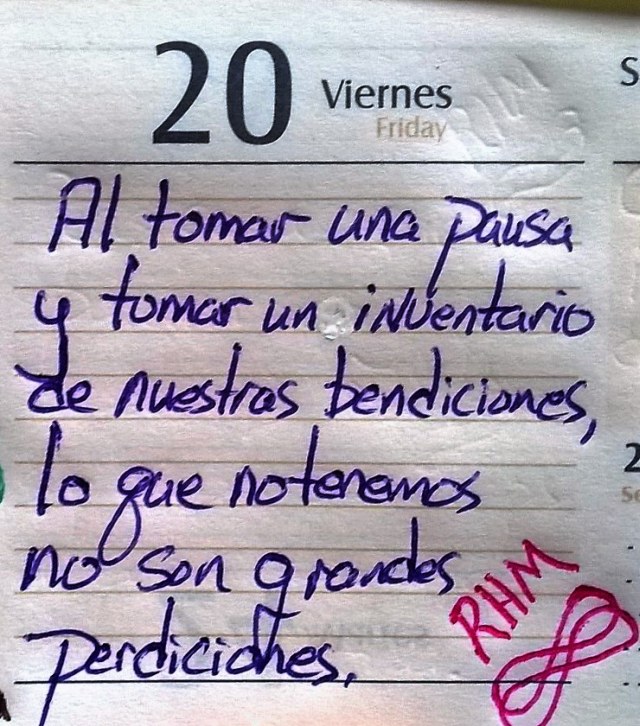 20 Viernes
Friday
Al tomar una pausa
y tomar un inventario
de nuestras bendiciones,
lo que no tenemos
no son grandes
perdiciones.
RHM
S
2